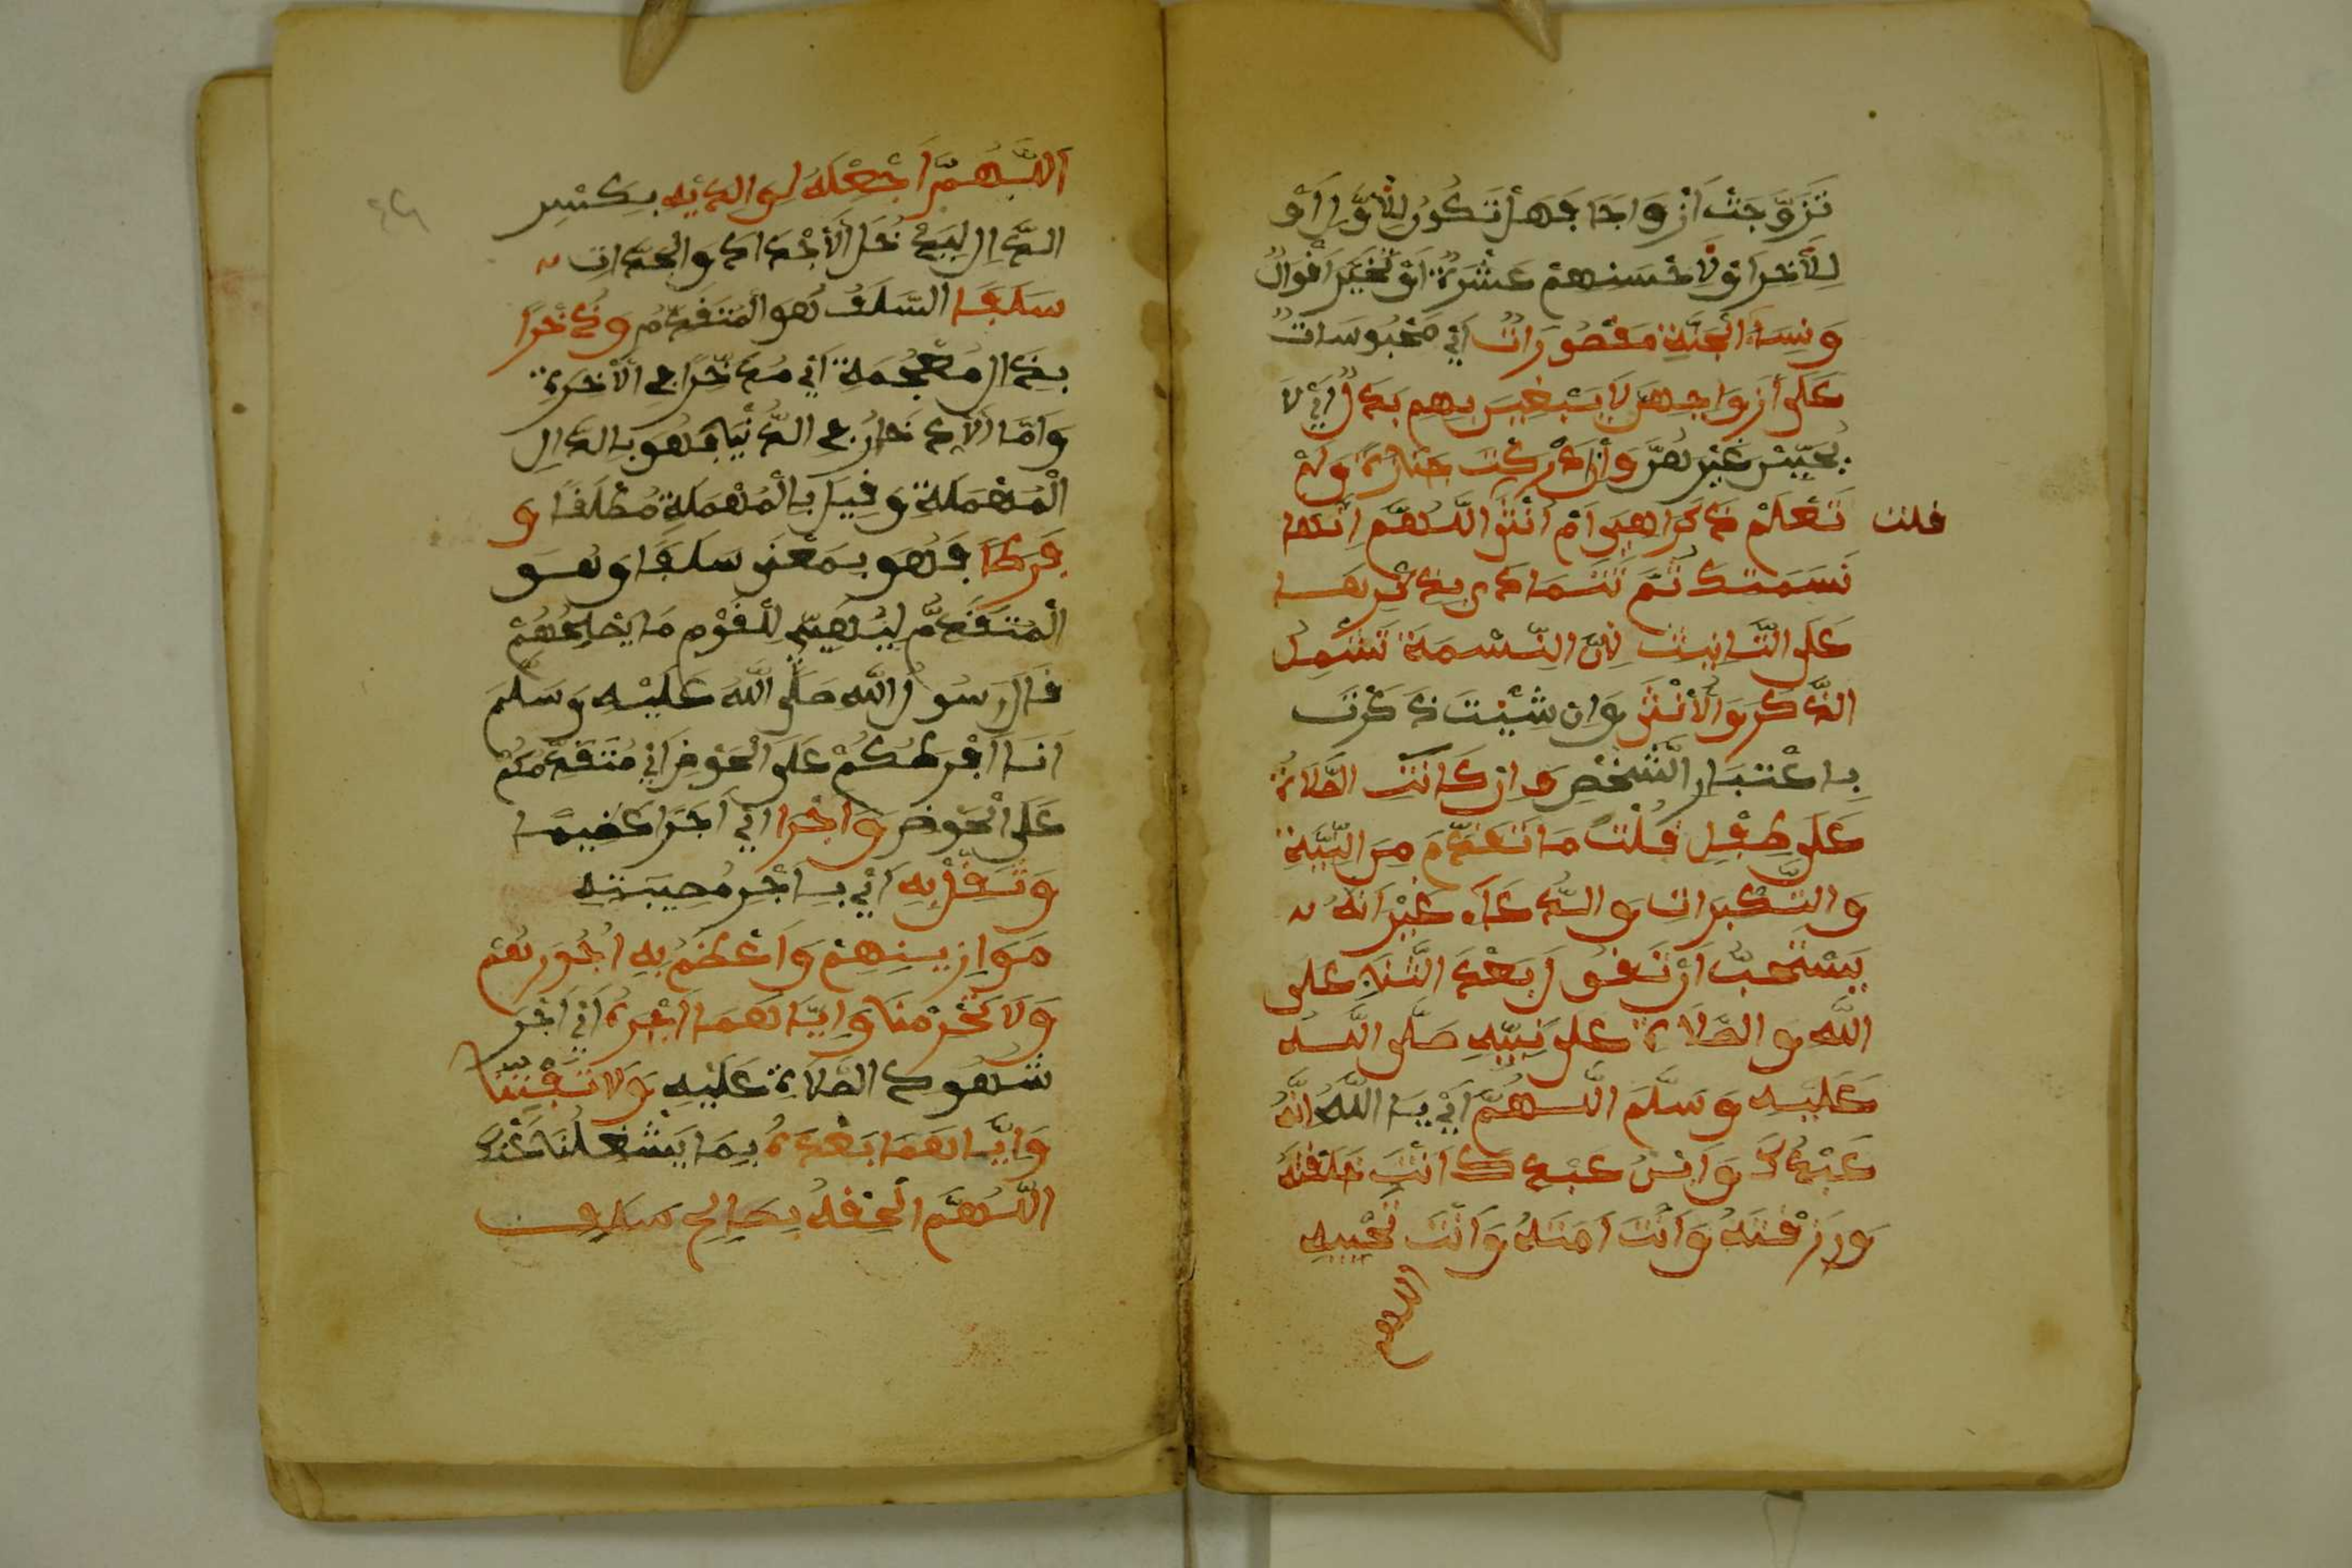 تَزَوَّجَتْ اَزْوَاجًا فَهَلْ تَكُونُ لِلْأَوَّلِ أَوْ
لِلْأَخِرِ أَوْ لِأَحْسَنِهِمْ عِشْرَةً أَوْ تُخَيَّرُ أَقْوَالٌ
وَنِسَاءُ الْجَنَّةِ مَقْصُورَاتٌ أَيْ مَحْبُوسَاتٌ
عَلَى أَزْوَاجِهِنَّ لَا يَبْغِينَ بِهِمْ بَدَلًا أَيْ لَا
يُحِبِّينَ غَيْرَهُمْ وَإِنْ أَدْرَكْتَ جَنَازَةً وَلَمْ
تَعْلَمْ ذَكَرًا هِيَ أَمْ أُنْثَى اللَّهُمَّ إِنَّهَا
قلت
نَسَمَتُكَ ثُمَّ تَتَمَادَى بِذِكْرِهَا
عَلَى التَّانِيثِ لِأَنَّ النَّسَمَةَ تَشْمِلُ
الذَّكَرَ وَالْأُنْثَى وَإِنْ شِئْتَ ذَكَرْتَ
بِاعْتِبَارِ الشَّخْصِ وَإِنْ كَانَتِ الصَّلَاةُ
عَلَى طِفْلٍ قُلْتَ مَا تَقَدَّمَ مِنَ النِّيَّةِ
وَالتَّكْبِيرَاتِ وَالدُّعَاءِ غَيْرَ أَنَّهُ
يُسْتَحَبُّ أَنْ تَقُولَ بَعْدَ الثَّنَاءِ عَلَى
اللَّهِ وَالصَّلَاةِ عَلَى نَبِيِّهِ صَلَّى اللَّهُ
عَلَيْهِ وَسَلَّمَ اللَّهُمَّ أَيْ يَا اللَّهُ إِنَّهُ
عَبْدُكَ وَابْنُ عَبْدِكَ أَنْتَ خَلَقْتَهُ
وَرَزَقْتَهُ وَأَنْتَ أَمَتَّهُ وَأَنْتَ تُحْيِيهِ
اللهم
اَللَّهُمَّ اَجْعَلْهُ لِوَالِدَيْهِ بِكَسْرِ
الدَّالِ لِيَدْخُلَ الْأَجْدَادُ وَالْجَدَّاتُ
سَلَفًا السَّلَفُ هُوَ الْمُتَقَدِّمُ وَذُخْرًا
بِذَالٍ مُعْجَمَةٍ أَيْ مُدَّخَرًا فِي الْآخِرَةِ
وَأَمَّا الْادِّخَارُ فِي الدُّنْيَا فَهُوَ بِالدَّالِ
الْمُهْمَلَةِ وَقِيلَ بِالْمُهْمَلَةِ مُطْلَقًا وَ
فَرَطًا فَهُوَ بِمَعْنَى سَلَفًا وَهُوَ
الْمُتَقَدِّمُ لِيُهَيِّئَ لِلْقَوْمِ مَا يُصْلِحُهُمْ
قَالَ رَسُولُ اللَّهِ صَلَّى اللَّهُ عَلَيْهِ وَسَلَّمَ
أَنَا أَفْرَطُكُمْ عَلَى الْحَوْضِ أَيْ مُتَقَدِّمُكُمْ
عَلَى الْحَوْضِ وَأَجْرًا أَيْ أَجْرًا عَظِيمًا
وَثَقِّلْ بِهِ أَيْ بِأَجْرِ مُصِيبَتِهِ
مَوَازِينَهُمْ وَأَعْظِمْ بِهِ أُجُورَهُمْ
وَلَا تَحْرِمْنَا وَإِيَّاهُمَا أَجْرَهُ أَيْ أَجْرَ
شُهُودِ الصَّلَاةِ عَلَيْهِ وَلَا تَفْتِنَّا
وَإِيَّاهُمَا بَعْدَهُ بِمَا يَشْغِلُنَا عَنْكَ
اللَّهُمَّ أَلْحِقْهُ بِصَالِحِ سَلَفِ